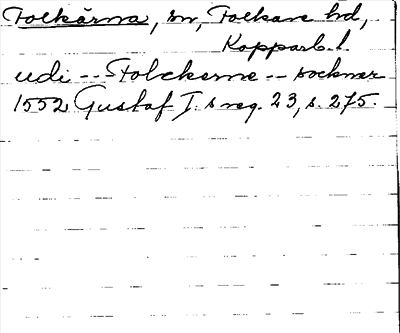 Folkärna, sn, Folkare hd,
Kopparb. l.
udi -- Ffolckerne -- sockner
1552 Gustaf I:s reg. 23, s. 275.